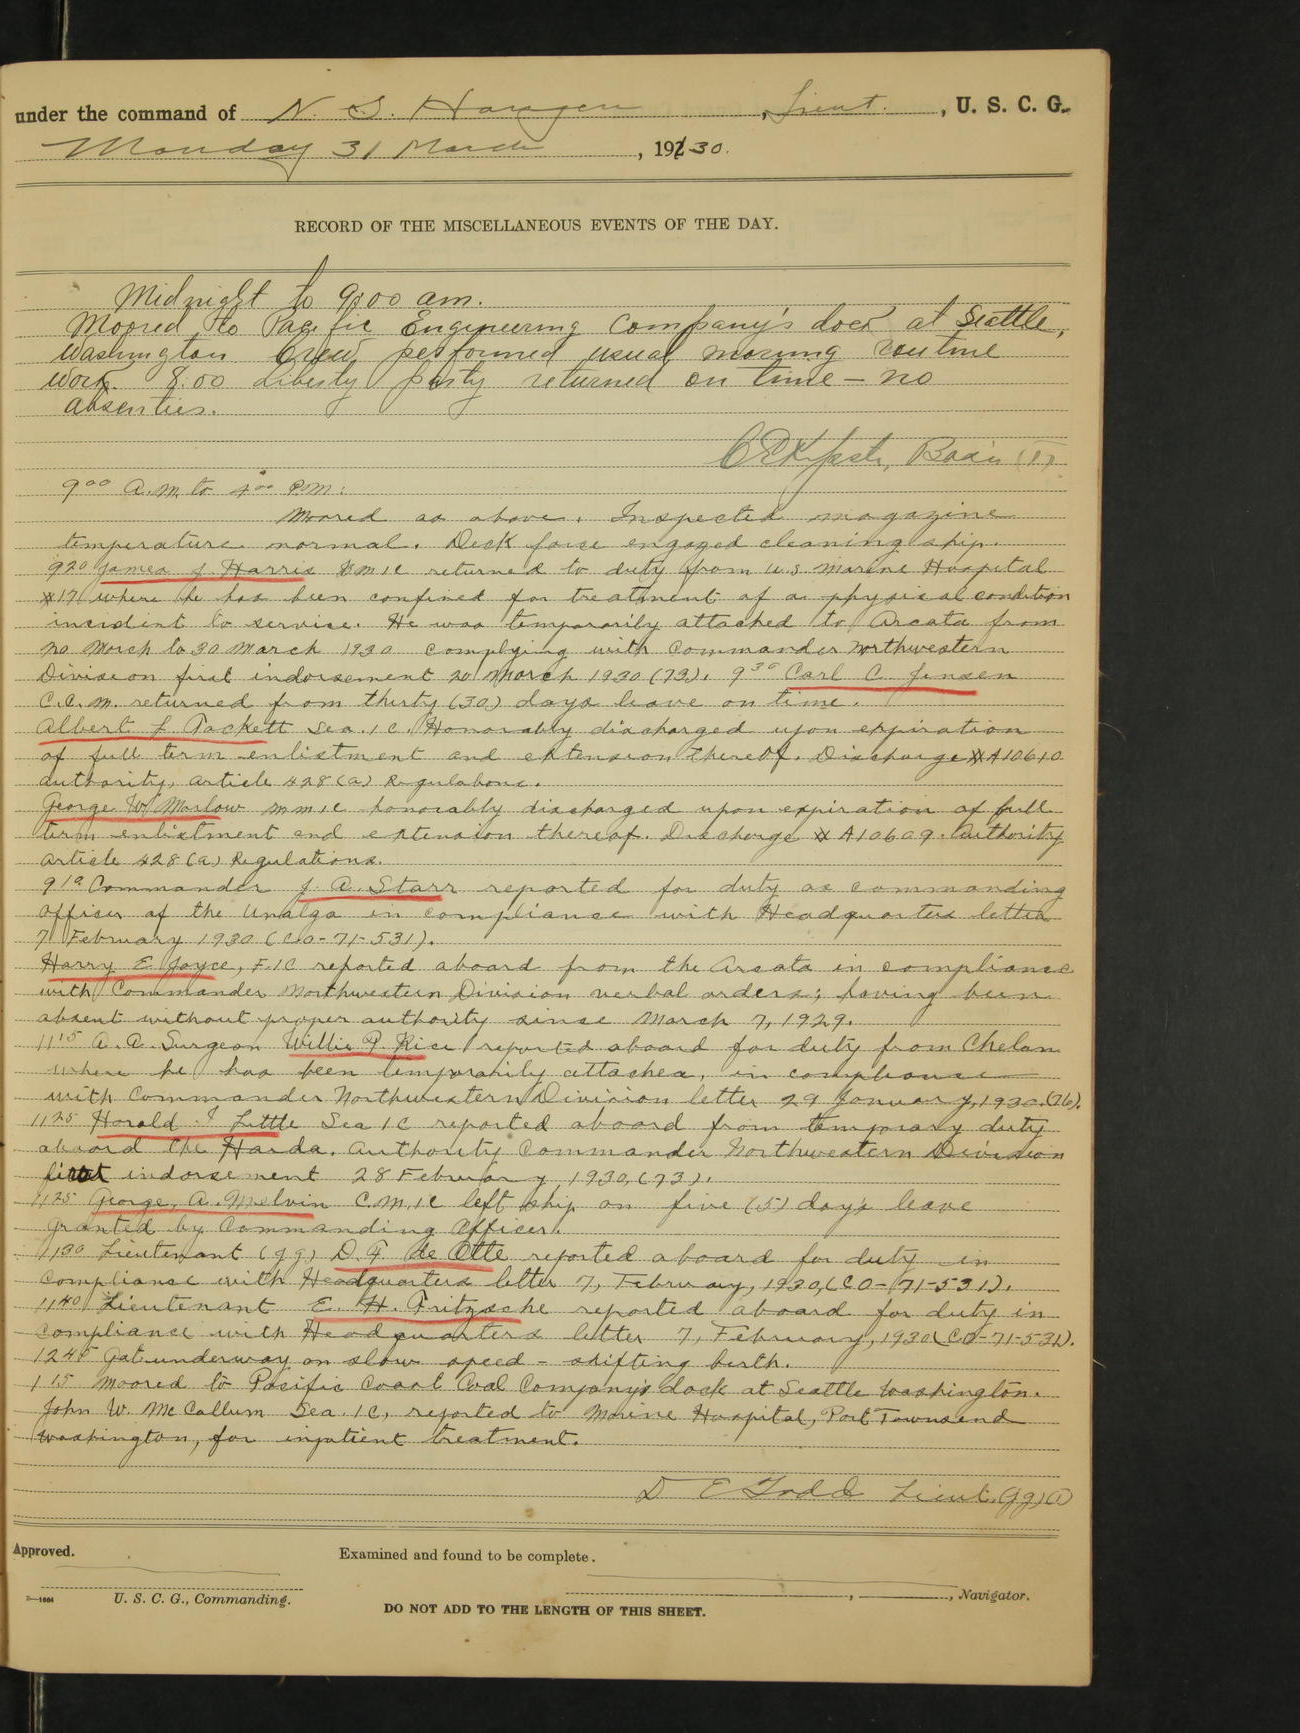 under the command of N. S. Haugen, Lieut., U. S. C. G.
Monday 31 March, 1930.
RECORD OF THE MISCELLANEOUS EVENTS OF THE DAY.
Midnight to 9:00 am.
Moored to Pacific Engineering Company's dock at Seattle,
Washington Crew performed usual morning routine
work. 8:00 Liberty party returned on time — no
absenties.
Boa's (T)
9⁰⁰ A.M. to 4⁰⁰ P.M:
Moored as above. Inspected magazine
temperature normal. Deck force engaged cleaning ship.
9²⁰ James J Harris BM1C returned to duty from U.S Marine Hospital
#17 where he has been confined for treatment of a physical condition
incident to service. He was temporarily attached to Arcata from
20 March to 30 March 1930 complying with Commander Northwestern
Division first indorsement 20 March 1930 (73). 9³⁰ Carl C. Jensen
C.C.M. returned from thirty (30) days leave on time.
Albert J Tackett Sea.1C. Honorably discharged upon expiration
of full term enlistment and extension thereof. Discharge #A10610
authority, article 428(a) Regulations.
George W. Marlow MM1C honorably discharged upon expiration of full
term enlistment and extension thereof. Discharge # A10609. Authority
article 428(a) Regulations.
9¹⁰ Commander J. A. Starr reported for duty as commanding
officer of the Unalga in compliance with Headquarters letter
7 February 1930 (CO-71-531).
Harry E Joyce, F.1C reported aboard from the Arcata in compliance
with Commander Northwestern Division verbal orders; having been
absent without proper authority since March 7, 1929.
11¹⁵ A. A. Surgeon Willis P. Rice reported aboard for duty from Chelan
where he has been temporarily attached, in compliance
with Commander Northwestern Division letter 29 January, 1930.(76).
11²⁵ Harold I Little Sea 1C reported aboard from temporary duty
aboard the Haida. Authority Commander Northwestern Division
first indorsement 28 February, 1930, (73).
11²⁵ George, A. Melvin C.M.1C left ship on five (5) day's leave
granted by Commanding Officer.
11³⁰ Lieutenant (jg) D. F. de Otte reported aboard for duty in
compliance with Headquarters letter 7, February, 1930, (CO-71-531).
11⁴⁰ Lieutenant E. H. Fritzsche reported aboard for duty in
compliance with Headquarters letter 7, February, 1930 (CO-71-531).
12⁴⁵ Got underway on slow speed - shifting berth.
1¹⁵ Moored to Pacific Coast Coal Company's dock at Seattle Washington.
John W. McCallum Sea.1C, reported to Marine Hospital, Port Townsend
Washington, for inpatient treatment.
D E Todd Lieut. (jg)(T)
Approved.
Examined and found to be complete.
U. S. C. G., Commanding.
, , Navigator.
DO NOT ADD TO THE LENGTH OF THIS SHEET.